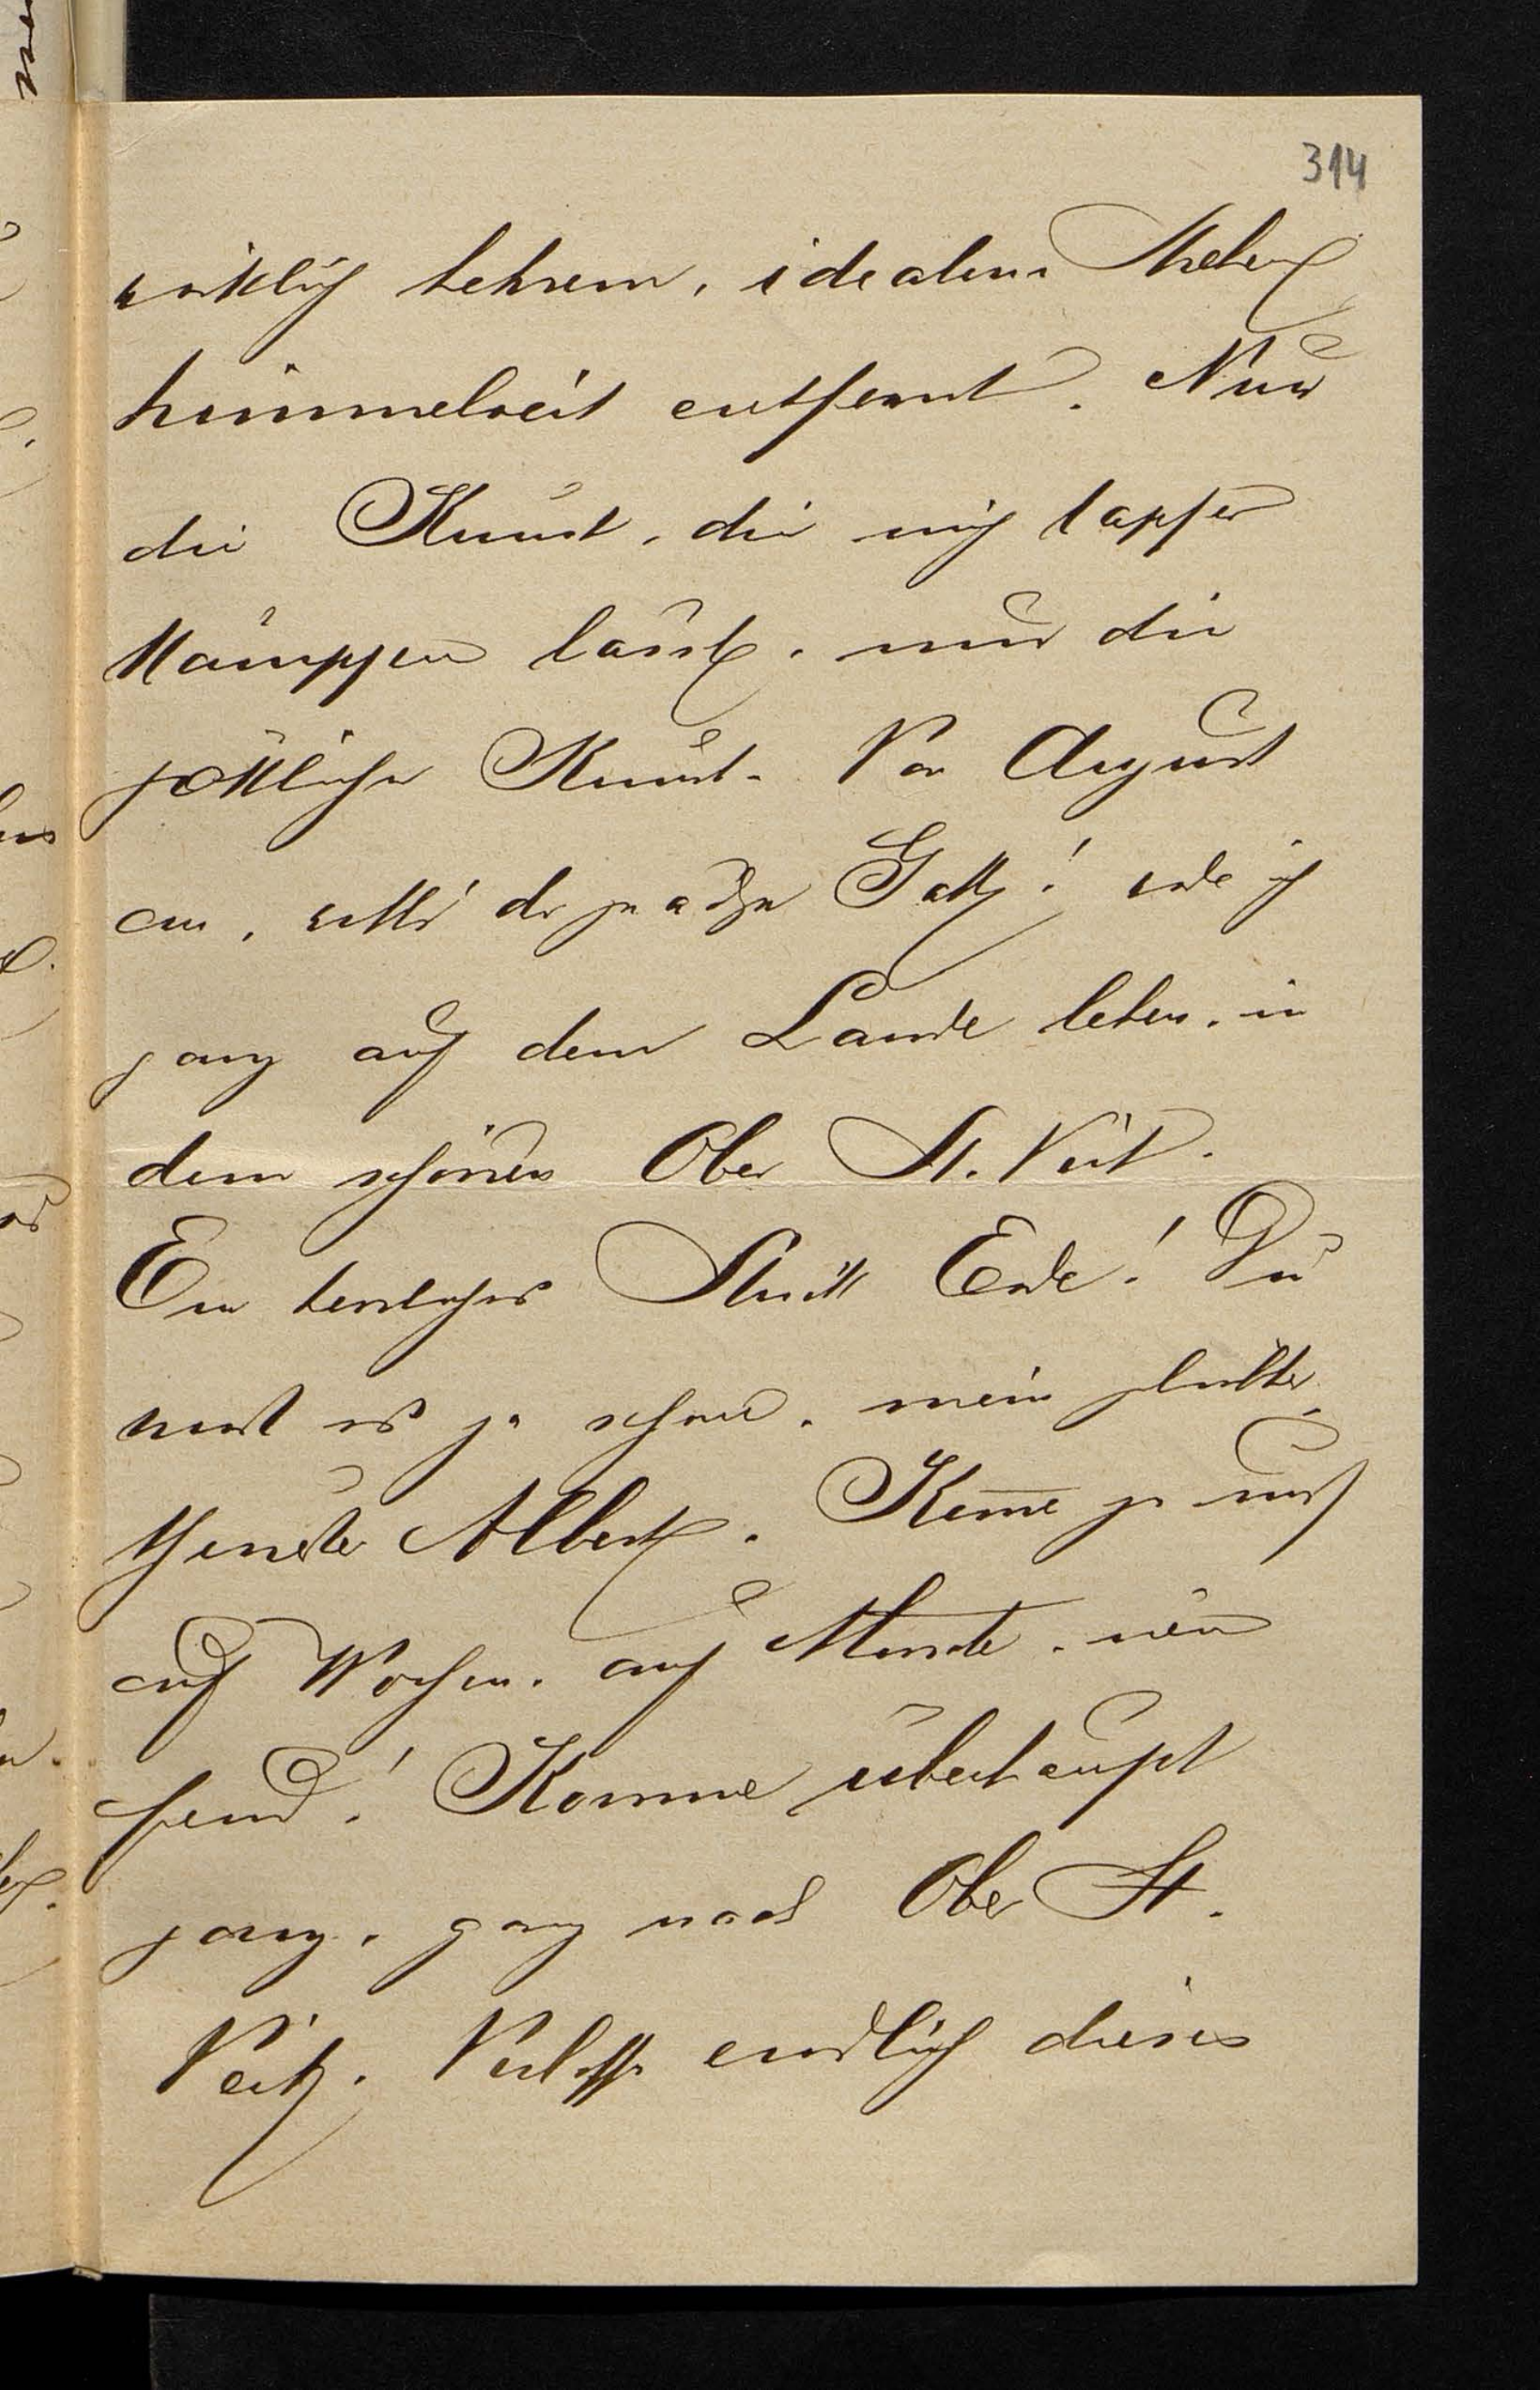 314
wirklich hehrem, idealem Streben
himmelweit entfernt. Nur
die Kunst, die mich tapfer
kämpfen lässt, nur die
göttliche Kunst. Von August
an, will's der gnädge Gott! werde ich
ganz auf dem Lande leben, in
dem schönen Ober St. Veit.
Ein herrliches Stück Erde! Du
weißt es ja schon, mein
Albert. Komme ja
auf Wochen, auf Monate,
Komme überhaupt
ganz, ganz nach Ober St.
Veit. Verlasse endlich dieses